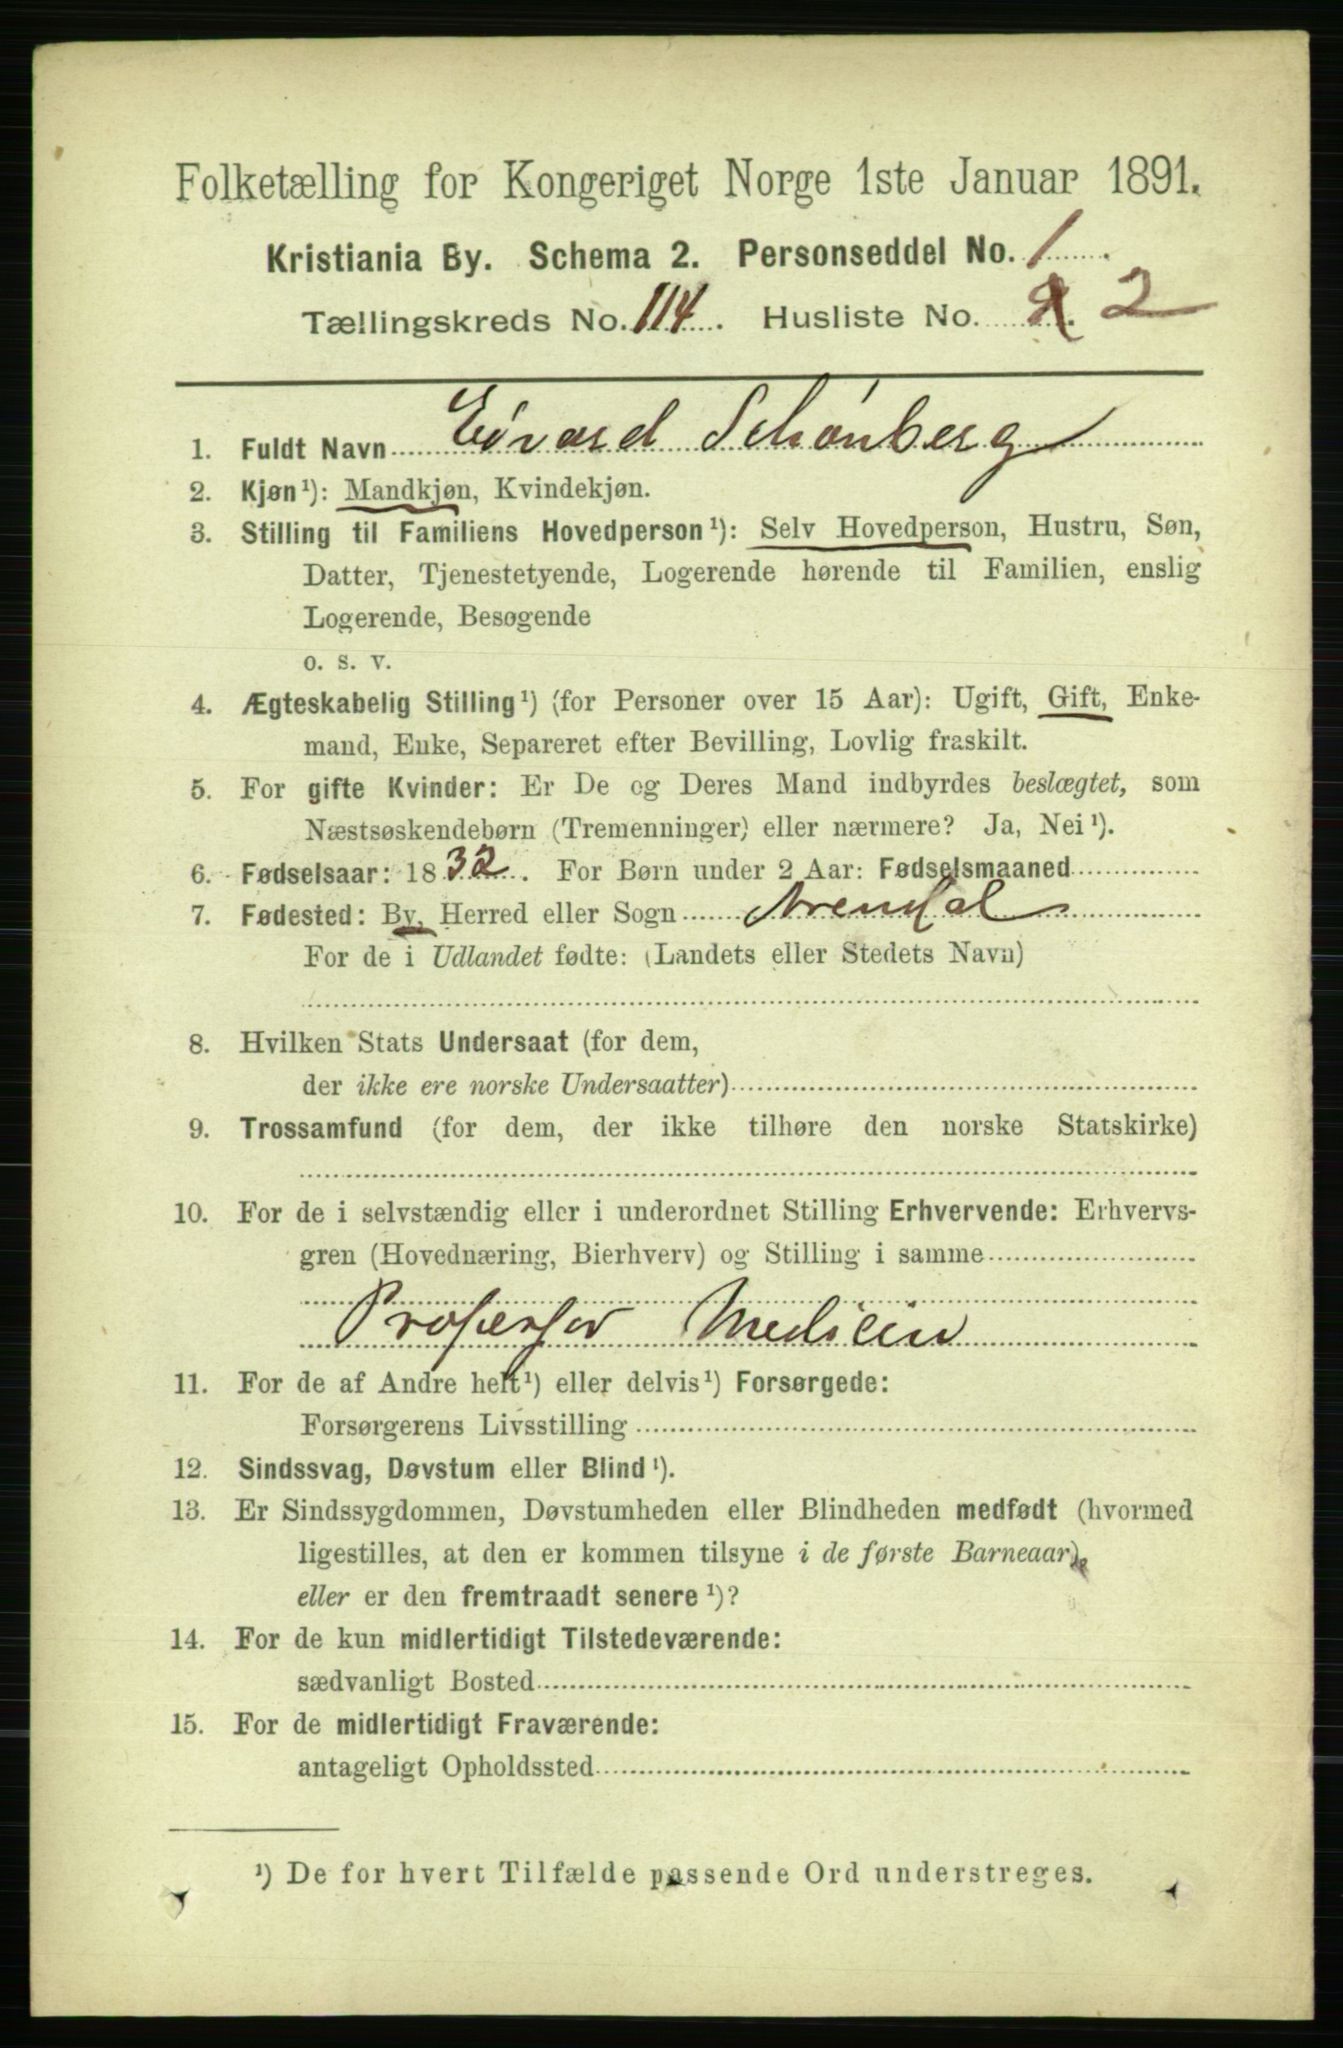 Folketælling for Kongeriget Norge 1ste Januar 1891.
Kristiania By. Schema 2. Personseddel No. 1
Tællingskreds No. 114. Husliste No. 2
1. Fuldt Navn Edvard Schønberg
2. Kjøn¹): Mandkjøn, Kvindekjøn.
3. Stilling til Familiens Hovedperson¹): Selv Hovedperson, Hustru, Søn,
Datter, Tjenestetyende, Logerende hørende til Familien, enslig
Logerende, Besøgende
o. s. v.
4. Ægteskabelig Stilling¹) (for Personer over 15 Aar): Ugift, Gift, Enke-
mand, Enke, Separeret efter Bevilling, Lovlig fraskilt.
5. For gifte Kvinder: Er De og Deres Mand indbyrdes beslægtet, som
Næstsøskendebørn (Tremenninger) eller nærmere? Ja, Nei¹).
6. Fødselsaar: 1832. For Børn under 2 Aar: Fødselsmaaned
7. Fødested: By, Herred eller Sogn Arendal
For de i Udlandet fødte: (Landets eller Stedets Navn)
8. Hvilken Stats Undersaat (for dem,
der ikke ere norske Undersaatter)
9. Trossamfund (for dem, der ikke tilhøre den norske Statskirke)
10. For de i selvstændig eller i underordnet Stilling Erhvervende: Erhvervs-
gren (Hovednæring, Bierhverv) og Stilling i samme
Professor Medicin
11. For de af Andre helt¹) eller delvis¹) Forsørgede:
Forsørgerens Livsstilling
12. Sindssvag, Døvstum eller Blind¹).
13. Er Sindssygdommen, Døvstumheden eller Blindheden medfødt (hvormed
ligestilles, at den er kommen tilsyne i de første Barneaar),
eller er den fremtraadt senere¹)?
14. For de kun midlertidigt Tilstedeværende:
sædvanligt Bosted
15. For de midlertidigt Fraværende:
antageligt Opholdssted
¹) De for hvert Tilfælde passende Ord understreges.